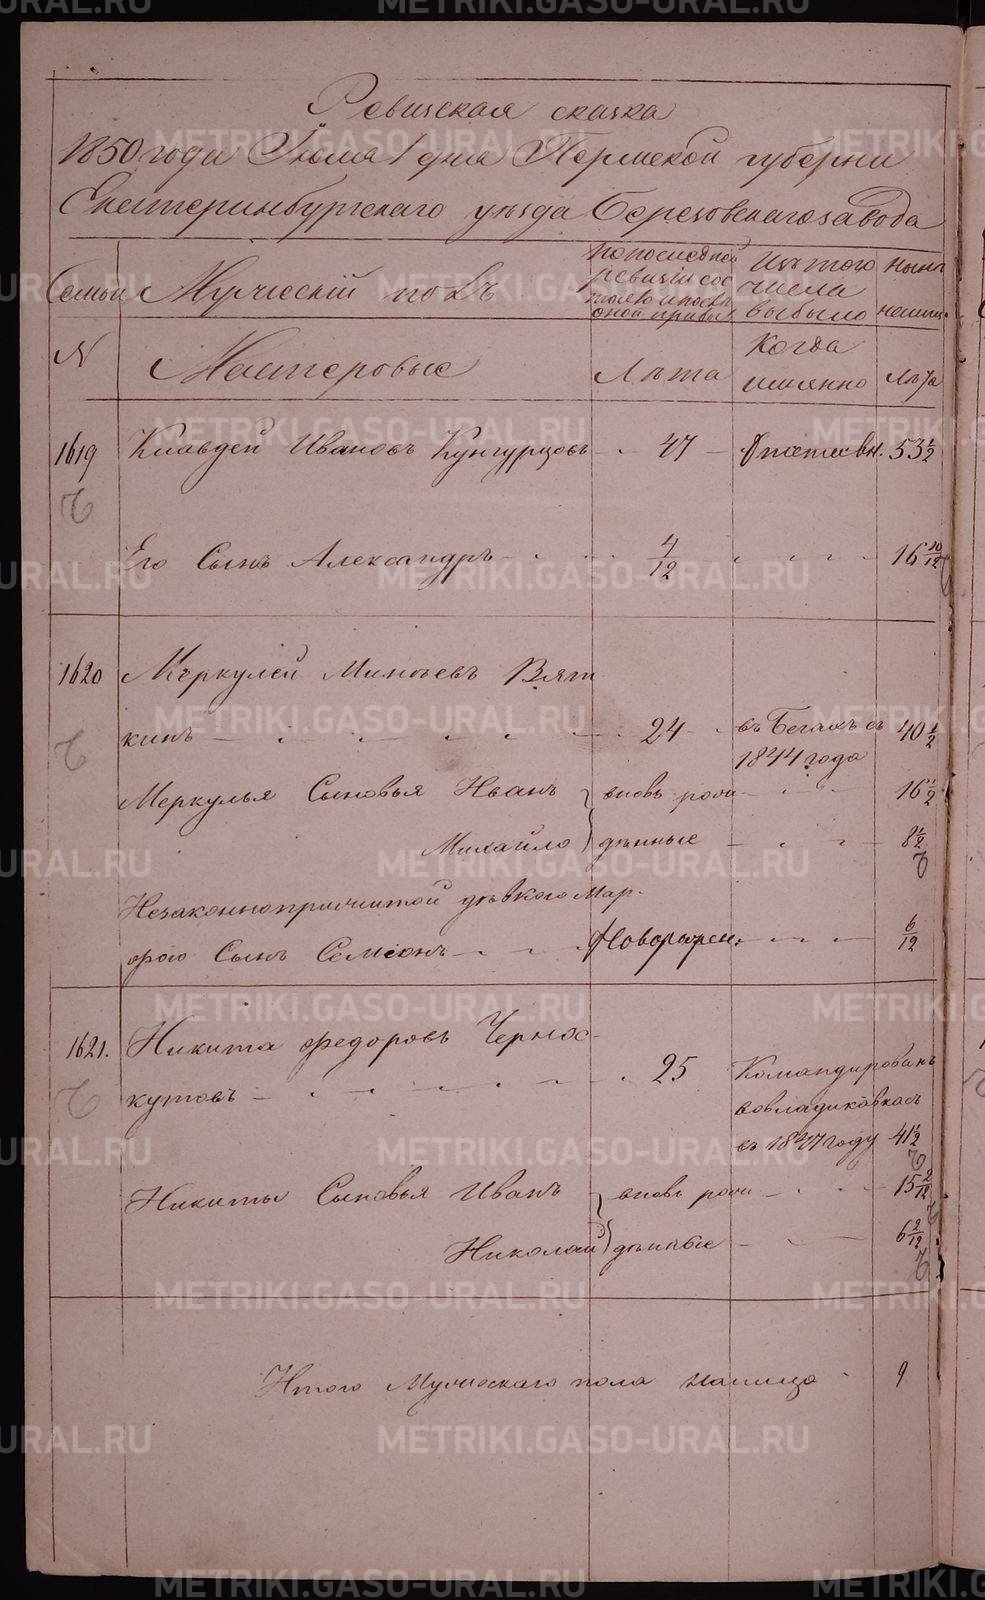 Ревизская сказка
1850 года Июля 1 дня Пермской губерни
Екатеринбургскаго уезда Березовскагозавода
Семьи Мужескій полъ
попоследней ревизіи состояло и после оной прибыло
Изътого числа выбыло
ныне налицо
N Мастеровые Лѣта Когда имянно Лѣта
1619 Клавдей Ивановъ Кунгурцовъ 47 Отставн. 53 1/2
Его Сынъ Александръ 4/12 16 10/12
1620 Меркулей Минѣевъ Вят
кинъ 24 въ Бегахъ съ 1844 года 40 1/2
Меркулья Сыновья Иванъ вновь рож 16 1/2
Михайло денные 8 1/2
Незаконноприжитой девкою Мар-
фою Сынъ Семіонъ Новорожден. 6/12
1621. Никита Федоровъ Чернос-
кутовъ 25 Командированъ
вовладикавказъ
въ 1847 году 41 1/2
Никиты Сыновья Иванъ вновь рож 15 2/12
Николай денные 6 2/12
Итого Мужескаго пола налицо 9
METRIKI.GASO-URAL.RU